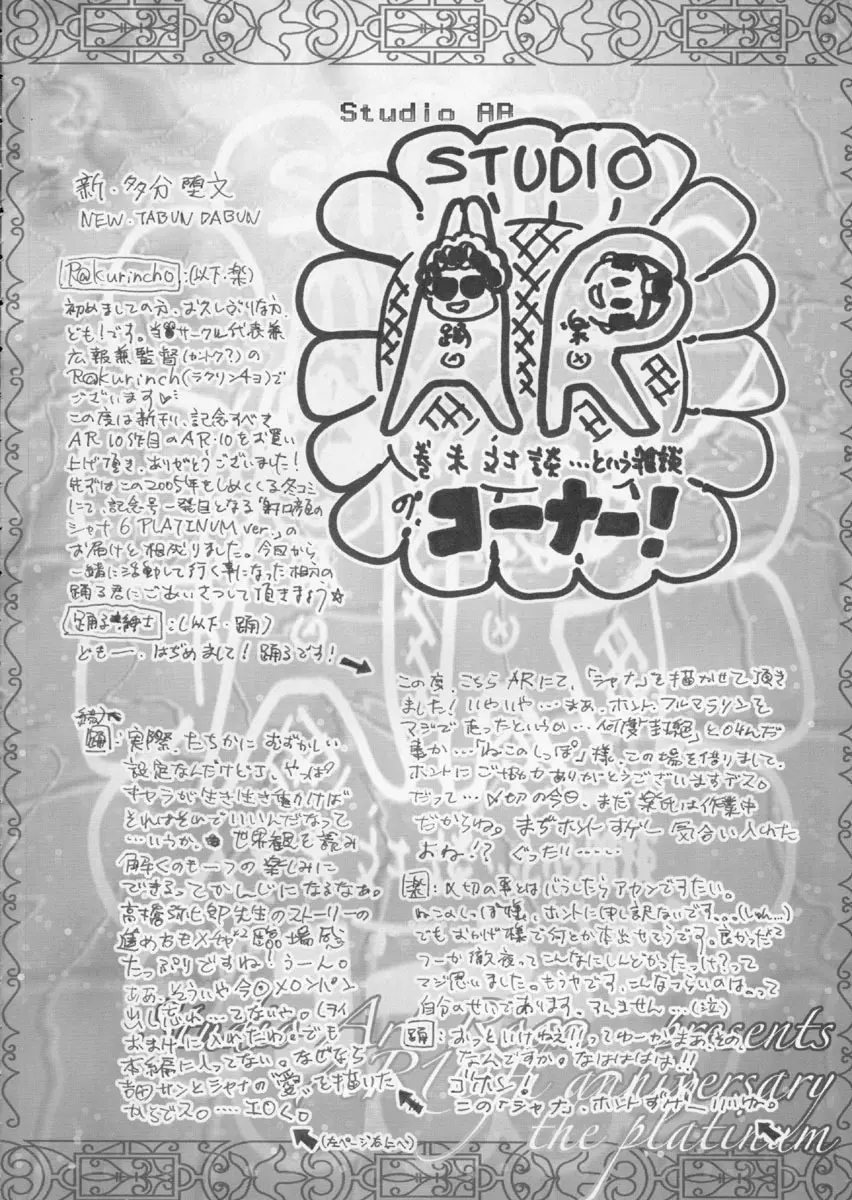 Studio AR
STUDIO
AR
踊
楽
巻末対談…という雑談
の、コーナー!
新・多分堕文
NEW・TABUN DABUN
R@kurincho:(以下・楽)
初めましての方、お久しぶりな方、
ども!です。当サークル代表兼
広報兼監督(カントク?)の
R@kurinch(ラクリンチョ)で
ございます
この度は新刊、記念すべき
AR 10作目のAR・10をお買い
上げ頂き、ありがとうございました!
先ずはこの2005年をしめくくる冬コミ
にて、記念号一発目となる「射口顔の
シャナ6 PLATINUM ver.」の
お届けと相成りました。今回から
一緒に活動して行く事になった相方の
踊る君にごあいさつして頂きましょう☆
踊る紳士:(以下・踊)
ども一、はぢめまして!踊るです!
この度、こちらARにて、「シャナ」を描かせて頂き
ました!いやいや…まあ、ホント、フルマラソンを
マジで走ったというか…何度
事か…「ねこのしっぽ」様、この場を借りまして、
ホントにご協力ありがとうございますデス。
だって…〆切の今日、まだ楽氏は作業中
だからね。まぢホントすげー気合い入れた
おね!?ぐったり……
楽:〆切の事とはバラしたらアカンですたい。
ねこのしっぽ様、ホントに申し訳ないです…(しゅん…)
でもおかげ様で何とか本出せそうです。良かった
つーか徹夜ってこんなにしんどかったっけ?って
マジ思いました。もうヤです、こんなつらいのは…って
自分のせいであります。すんません…(泣)
踊:おっといけねえ!!ってゆーか、まあ、その、
なんですか。なはははは!!
ゴホン!
この「シャナ」、ホントすげー
踊:実際、たちかにむずかしい
設定なんだけどさ、やっぱ
キャラが生き生き動かけば
それはそのでいいんだなって
…いうか、世界観を読み
解くのも一つの楽しみに
できるってかんじになるなあ。
高橋弥七郎先生のストーリーの
進め方もメチャ2臨場感
たっぷりですね!うーん。
ああ、そういや今回メロンパン
出し忘れ…てないや。
おまけに入れたわ。でも
本編に入ってない。なぜなら
吉田サンとシャナの"愛"を描いた
からでス。…エロく。
(左ページ右上へ)
presents
anniversary
the platinum